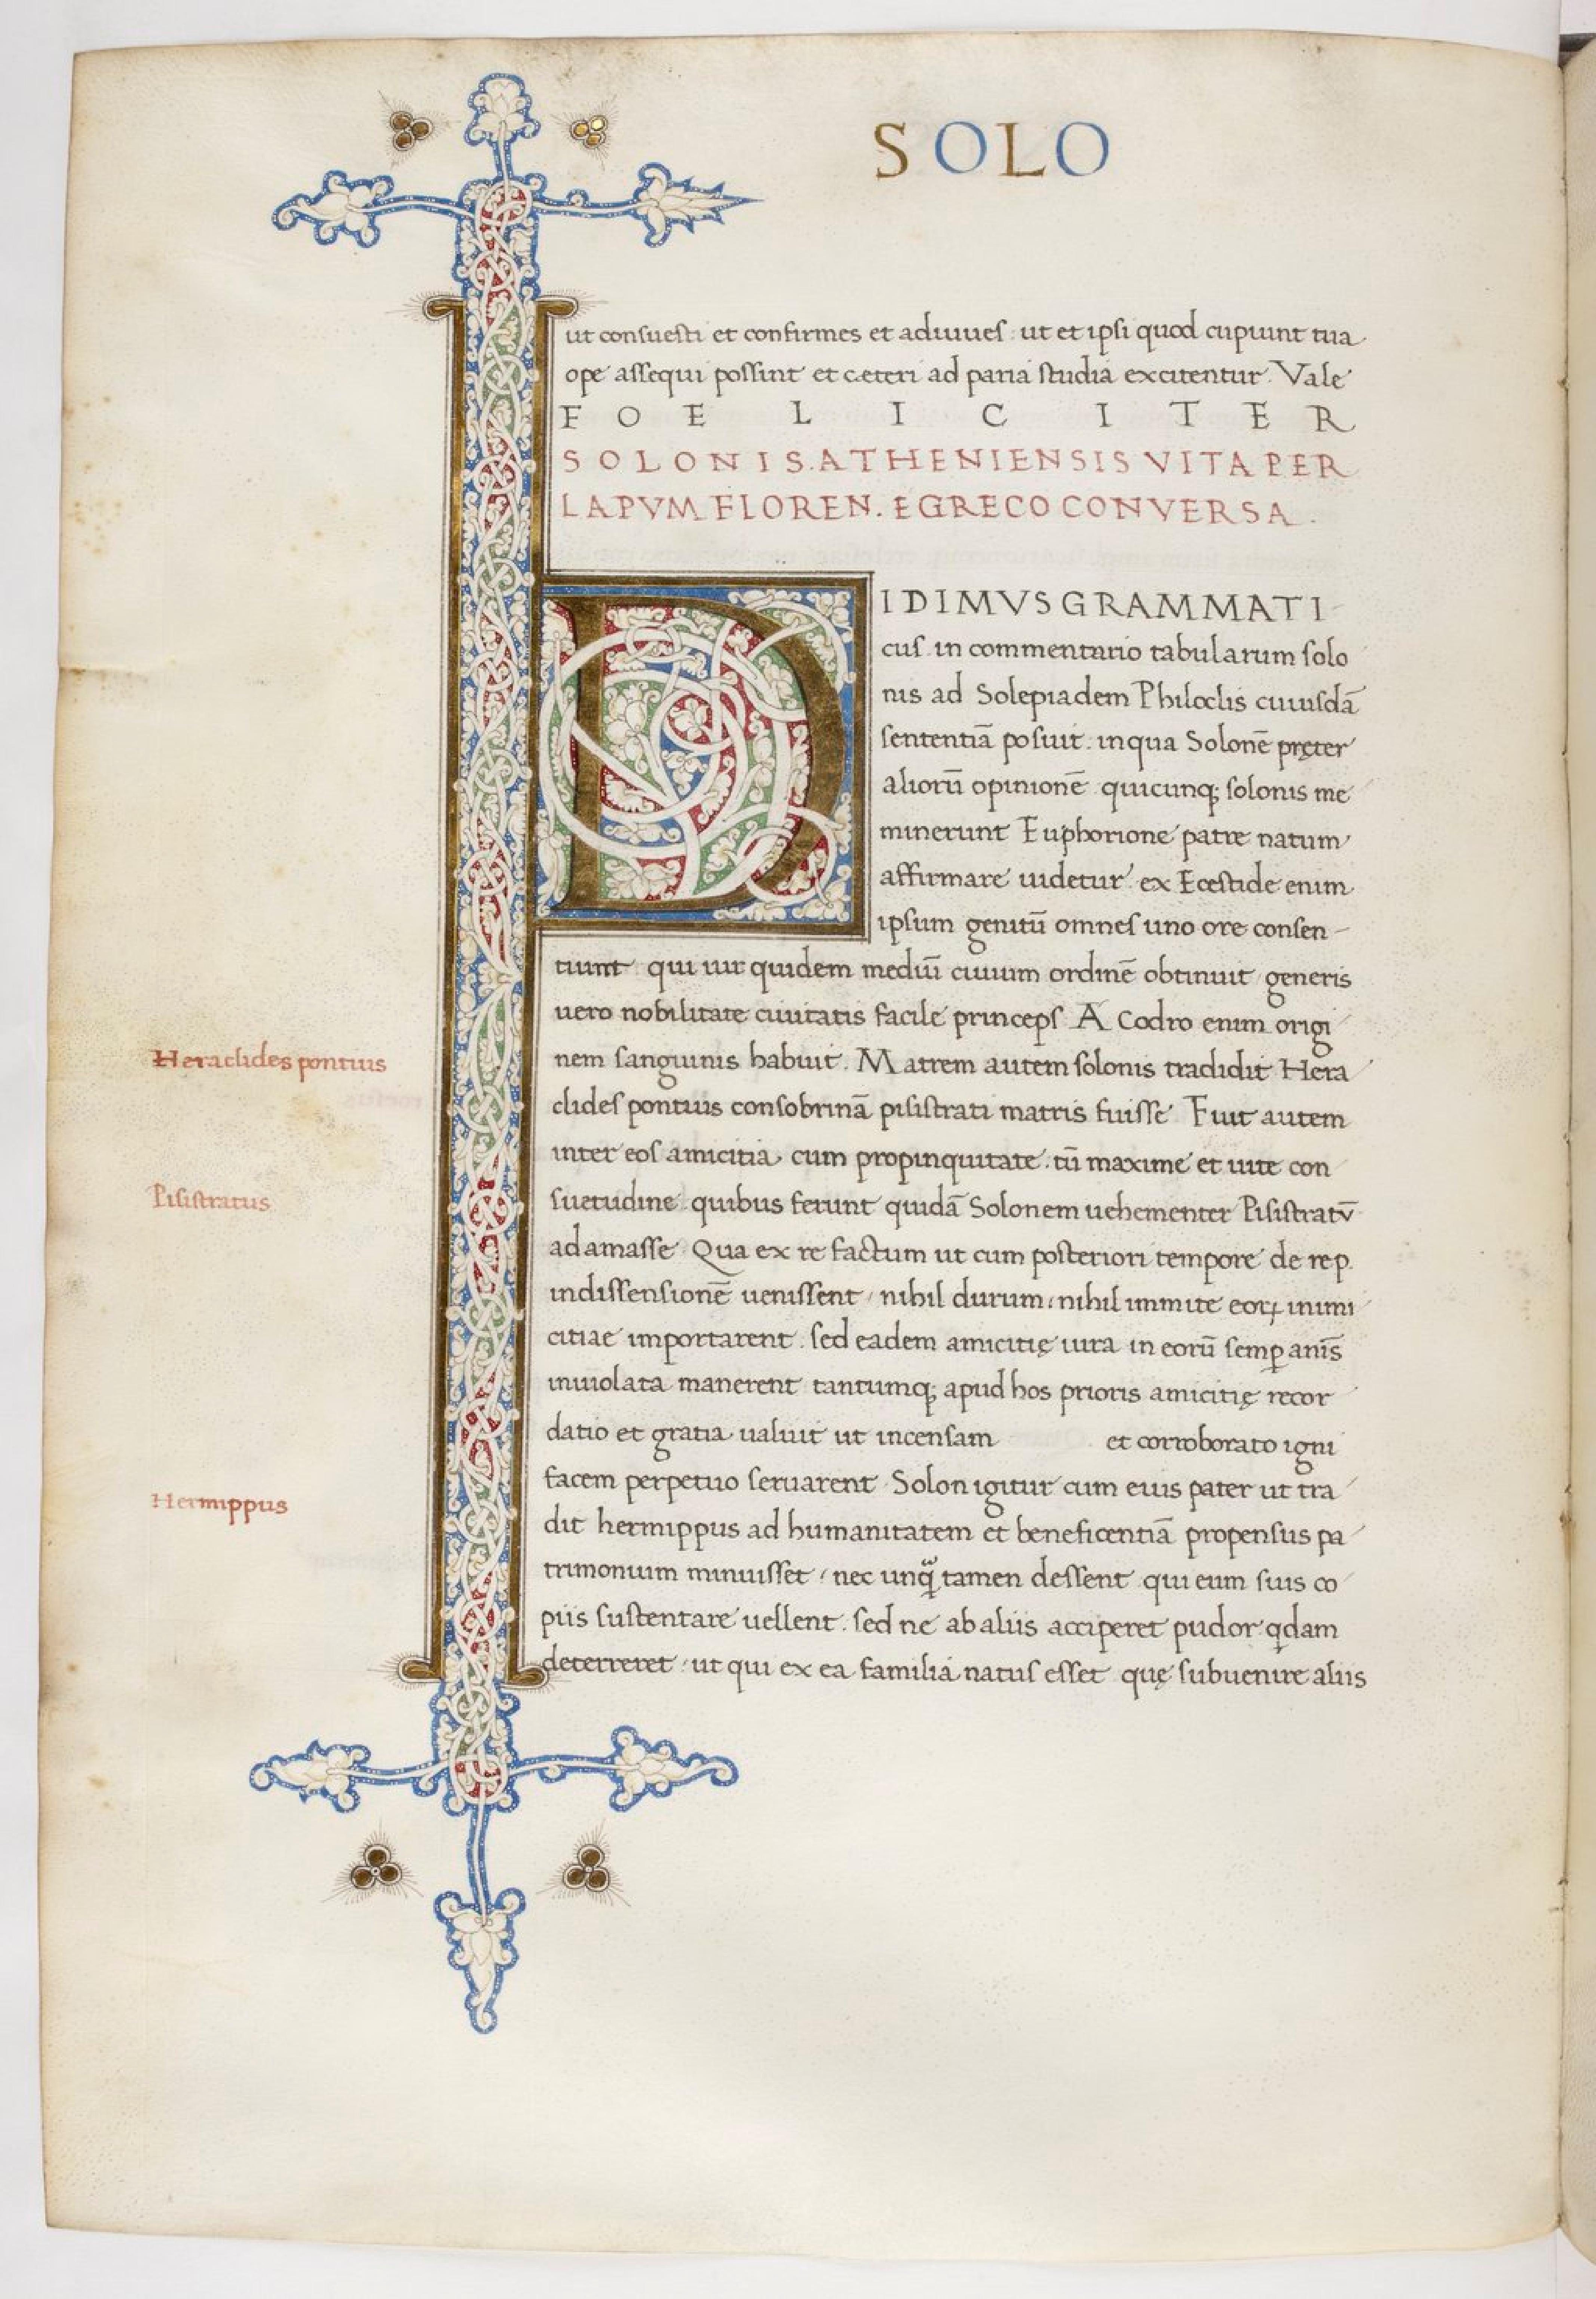 SOLO
ut consuesti et confirmes et adiuues ut et ipsi quod cupiunt tua
ope assequi possint et cæteri ad paria studia excitentur. Vale
FOELICITER
SOLONIS.ATHENIENSIS VITA PER
LAPVM FLOREN. E GRECO CONVERSA.
DIDIMVS GRAMMATI
cus in commentario tabularum solo
nis ad Solepiadem Philoclis cuiusdã
sententiã posuit. in qua Solonẽ pręter
aliorũ opinionẽ quicunq; solonis me
minerunt Euphorione patre natum
affirmare uidetur ex Ecestide enim
ipsum genitũ omnes uno ore consen-
tiunt qui uir quidem mediũ ciuium ordinẽ obtinuit generis
uero nobilitate ciuitatis facile princeps A Codro enim origi
Heraclides pontius
nem sanguinis habuit. Matrem autem solonis tradidit Hera
clides pontius consobrinã pisistrati matris fuisse Fuit autem
inter eos amicitia cum propinquitate. tũ maxime et uite con
Pisistratus
suetudine quibus ferunt quidã Solonem uehementer Pisistratv̄
adamasse Qua ex re factum ut cum posteriori tempore de rep.
in dissensionẽ uenissent nihil durum nihil immite eoꝝ inimi
citiae importarent. sed eadem amicitię iura in eorũ semꝑ anīs
inuiolata manerent tantumq; apud hos prioris amicitię recor
datio et gratia ualuit ut incensam et corroborato igni
facem perpetuo seruarent Solon igitur cum eius pater ut tra
Hermippus
dit hermippus ad humanitatem et beneficentiã propensus pa
trimonium minuisset nec unq̃ tamen dessent qui eum suis co
piis sustentare uellent. sed ne ab aliis acciperet pudor qdam
deterreret ut qui ex ea familia natus esset quę subuenire aliis